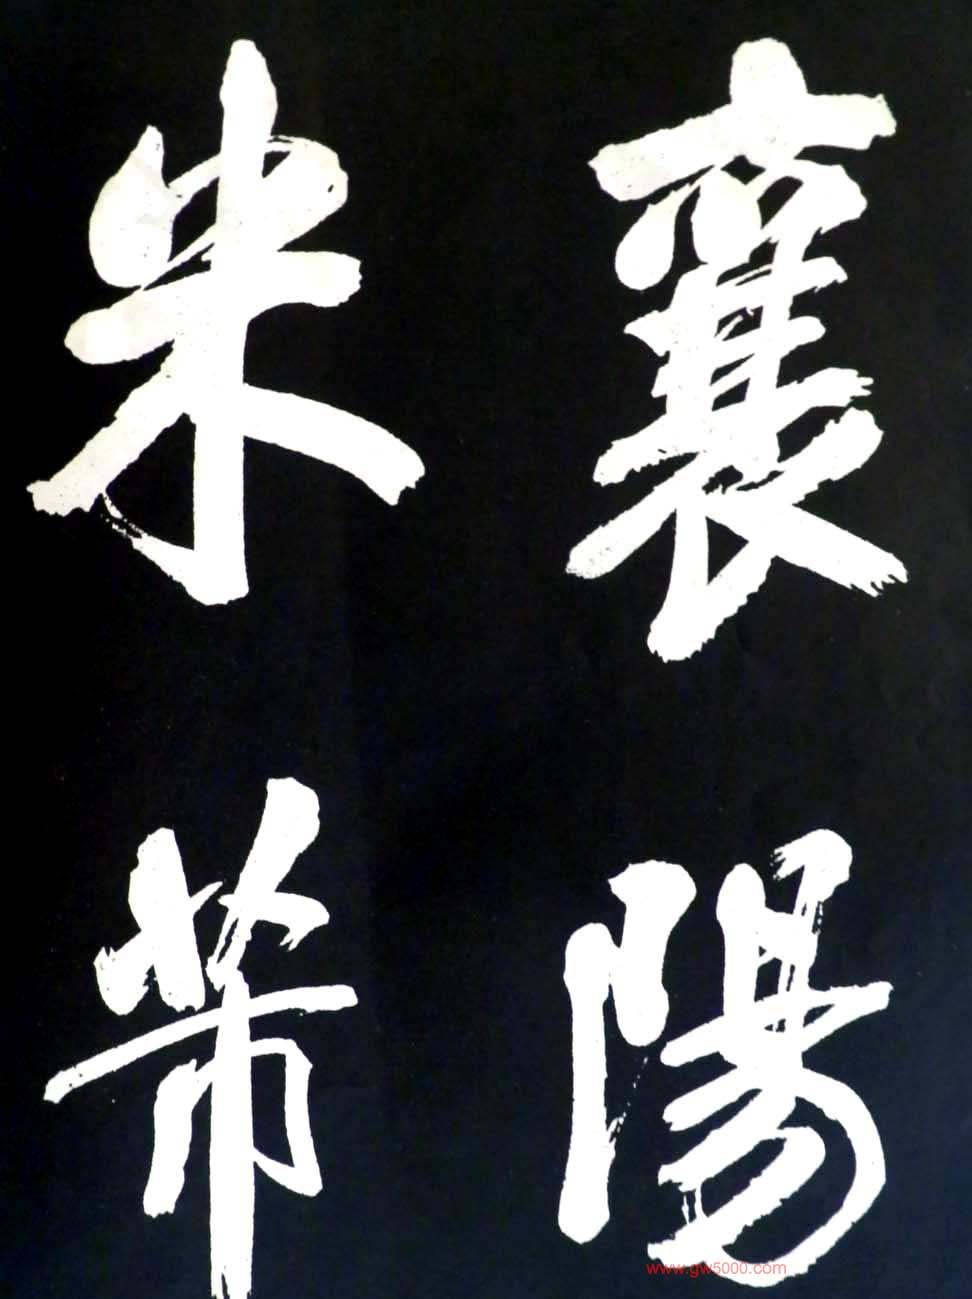 襄陽
米芾
www.gw5000.com